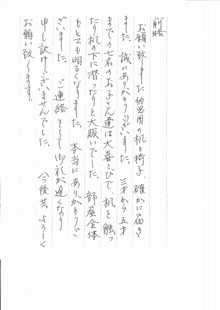 前略
お願い致しました幼児用の机と椅子、確かに届き
ました。誠にありがとうございました。三才から五才
までの七名のお子さん達は大喜こびで、机を触っ
たり机の下に潜ったりと大賑いでした。部屋全体
もとても明るくなりました。本当にありがとうご
ざいました。ご連絡そして御礼が遅くなり
申し訳ございませんでした。今後共よろしく
お願い致します。